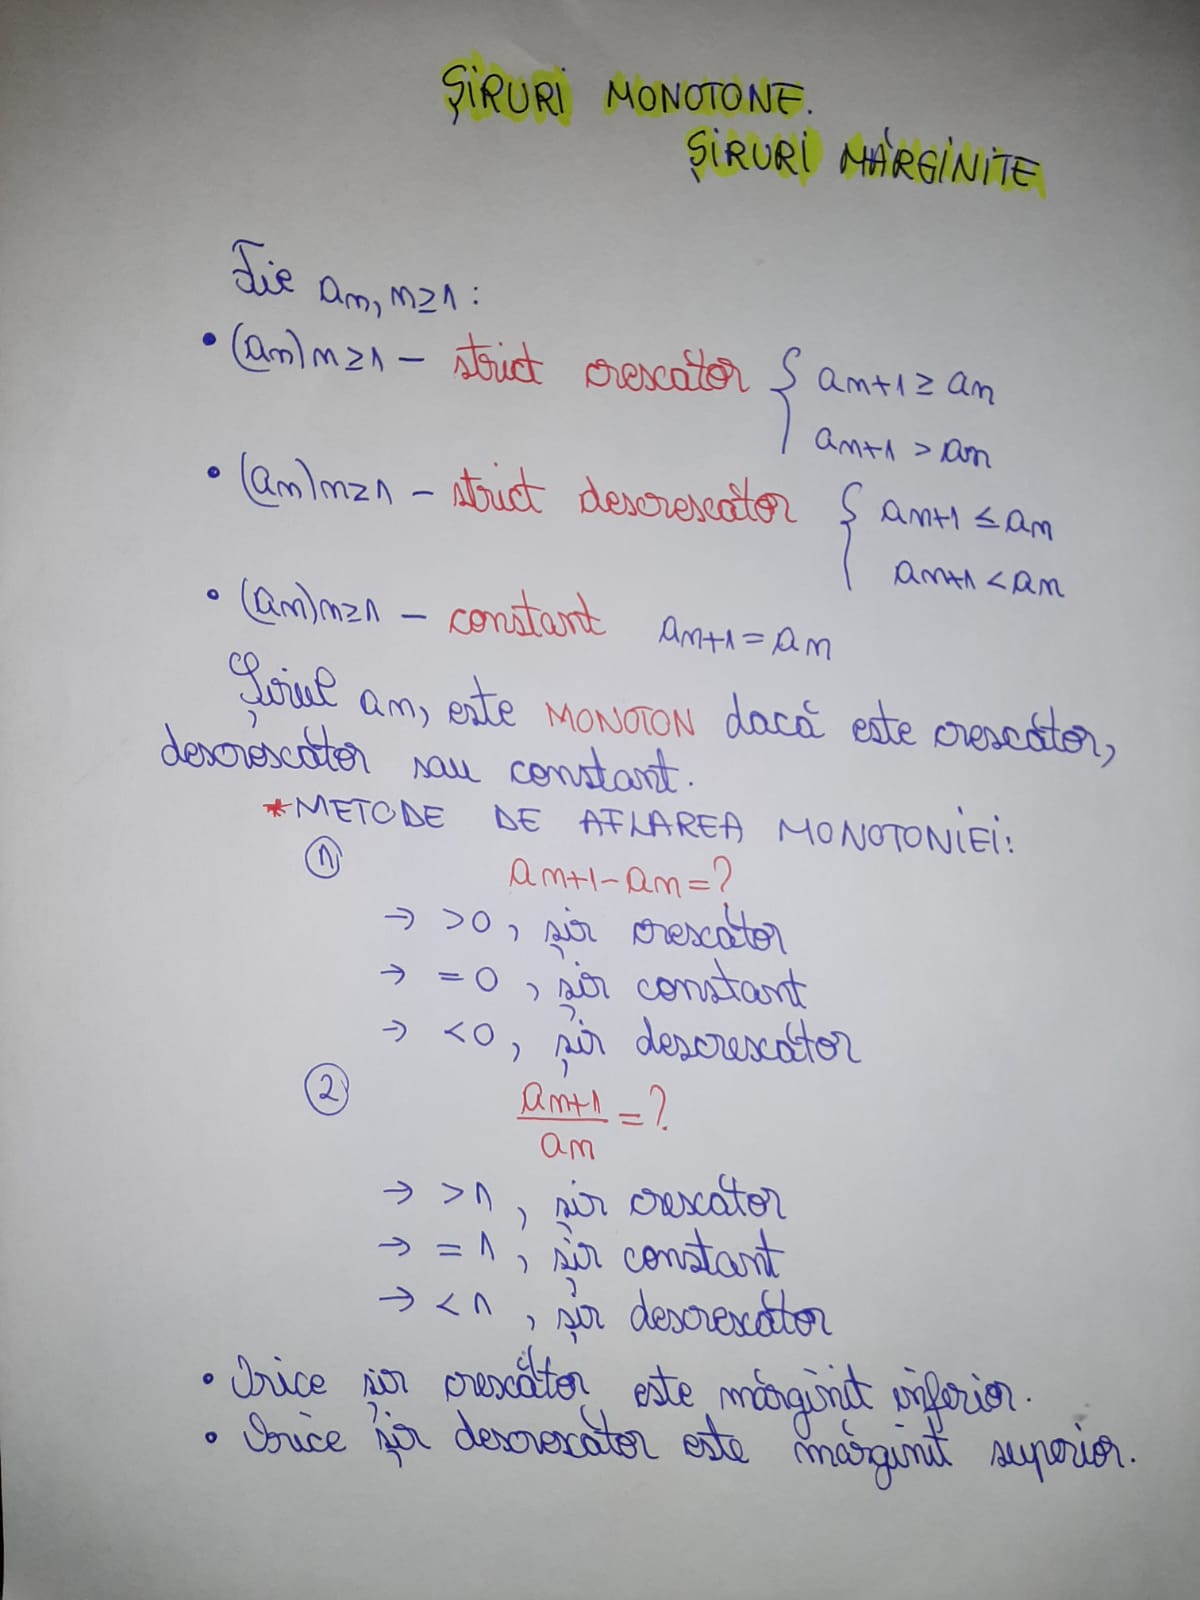 ŞIRURI MONOTONE.
ŞIRURI MĂRGINITE
Fie an, n≥1:
• (an)n≥1 – strict crescător { an+1 ≥ an
an+1 > an
• (an)n≥1 – strict descrescător { an+1 ≤ an
an+1 < an
• (an)n≥1 – constant an+1 = an
Şirul an, este MONOTON dacă este crescător,
descrescător sau constant.
*METODE DE AFLAREA MONOTONIEI:
① an+1 – an = ?
→ >0, şir crescător
→ =0, şir constant
→ <0, şir descrescător
② an+1/an = ?
→ >1, şir crescător
→ =1, şir constant
→ <1, şir descrescător
• Orice şir crescător este mărginit inferior.
• Orice şir descrescător este mărginit superior.